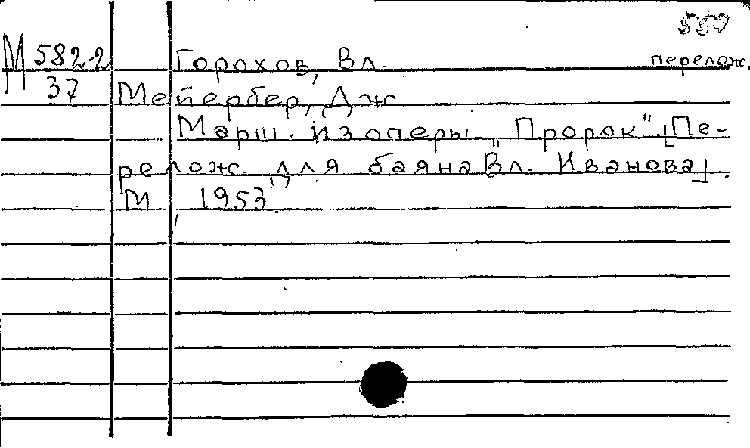 580
М 582-2 Горохов, Вл. перелож.
37 Мейербер, Дж
Марш. из оперы „Пророк" [Пе-
релож. для баяна Вл. Иванова].
М, 1953